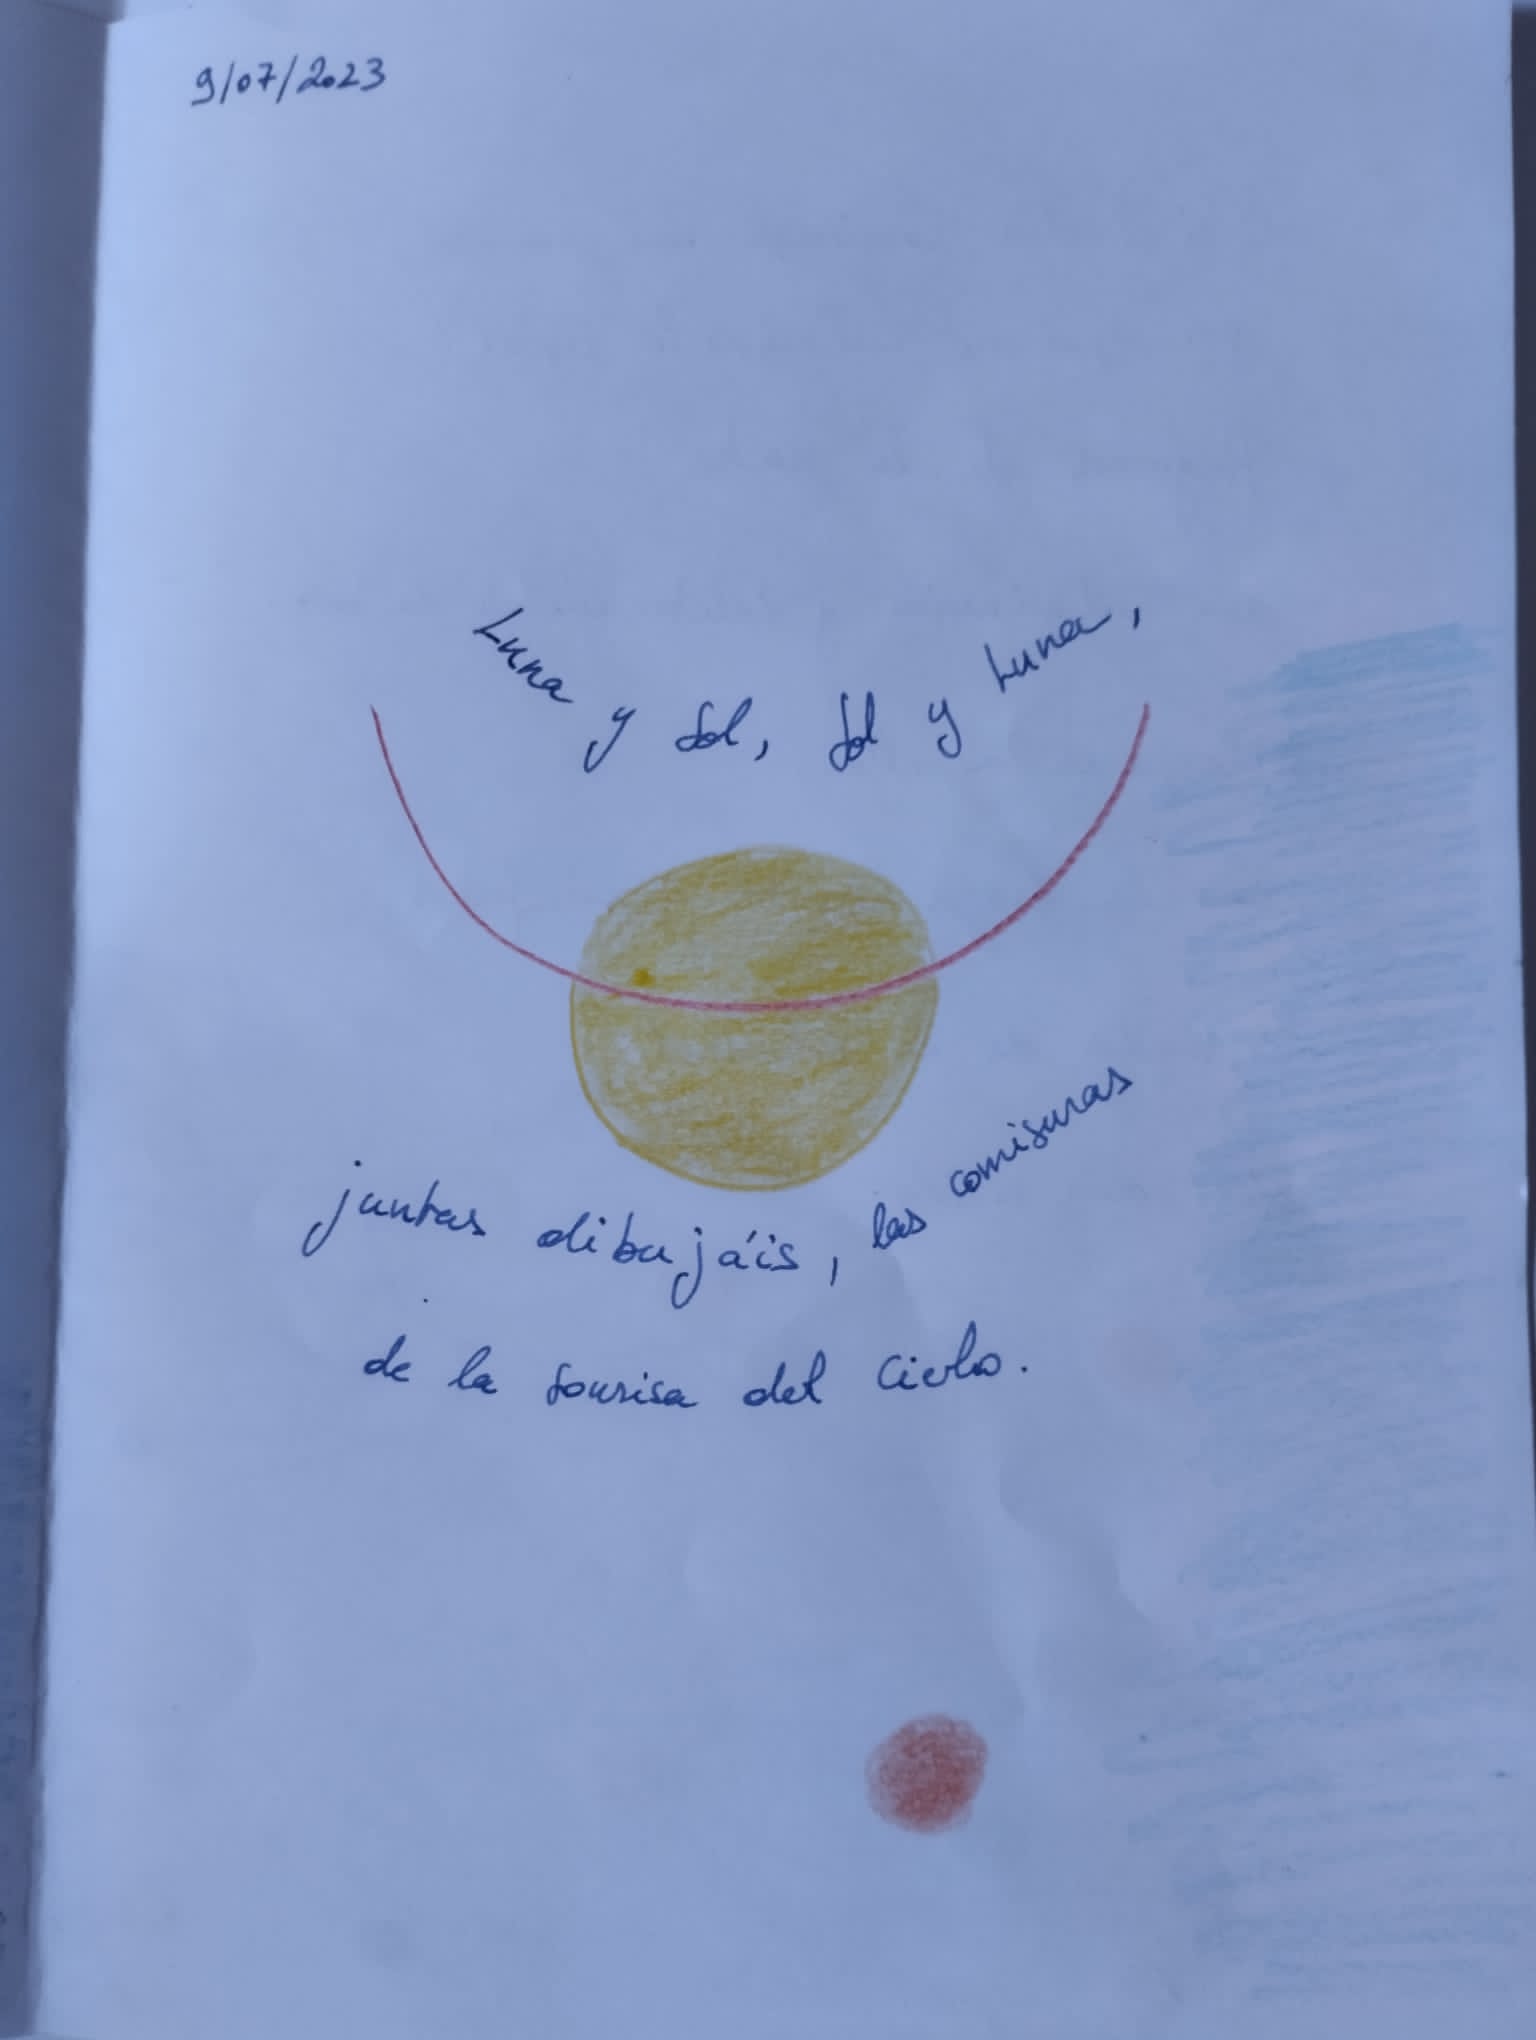 9/07/2023
Luna y Sol, Sol y Luna,
juntas dibujáis, las comisuras
de la sonrisa del Cielo.